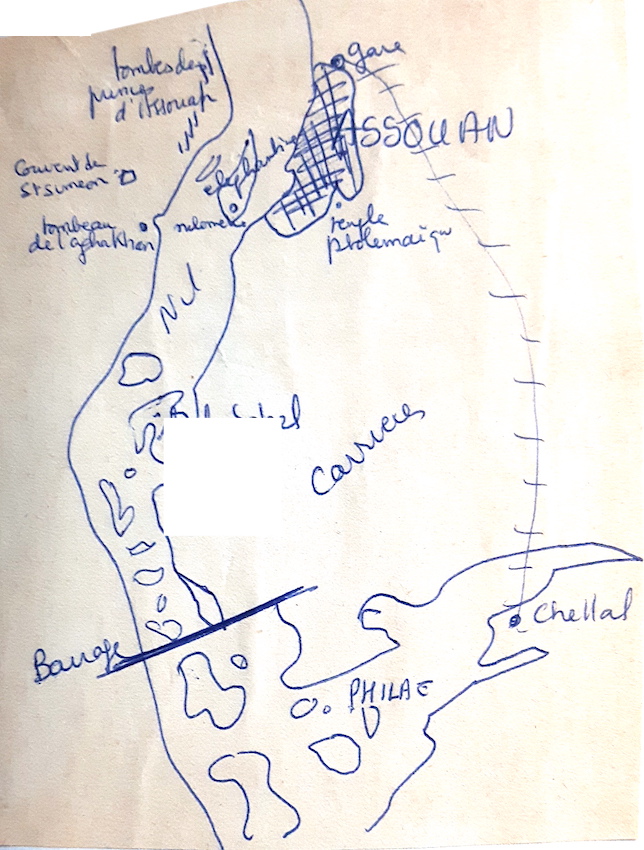 gare
tombes des
princes
d'Assouan
ASSOUAN
Couvent de
St Simeon
elephantine
tombeau
de l'agha khan
nilometre
temple
ptolemaïque
Nil
Carrieres
Chellal
Barrage
PHILAE